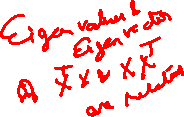 Eigen values &
Eigen vectors
of X^T X & X X^T
are related